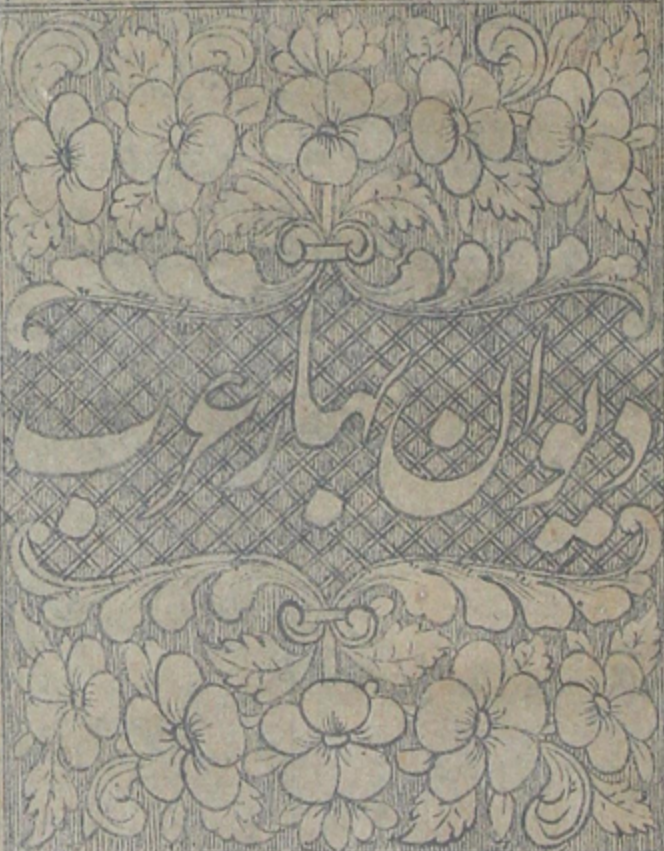 دیوان بهار عرب